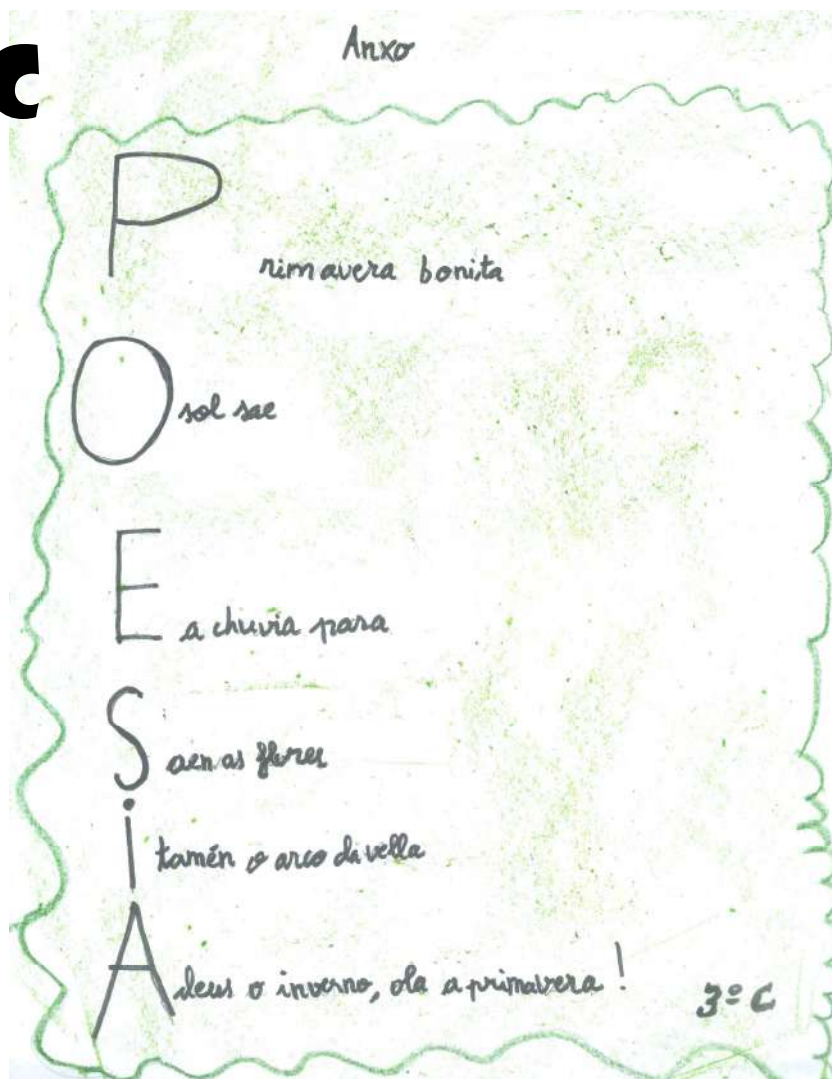 C
Anxo
Primavera bonita
O sol sae
E a chuvia para
Saen as flores
i tamén o arco da vella
Adeus o inverno, ola a primavera!
3º C